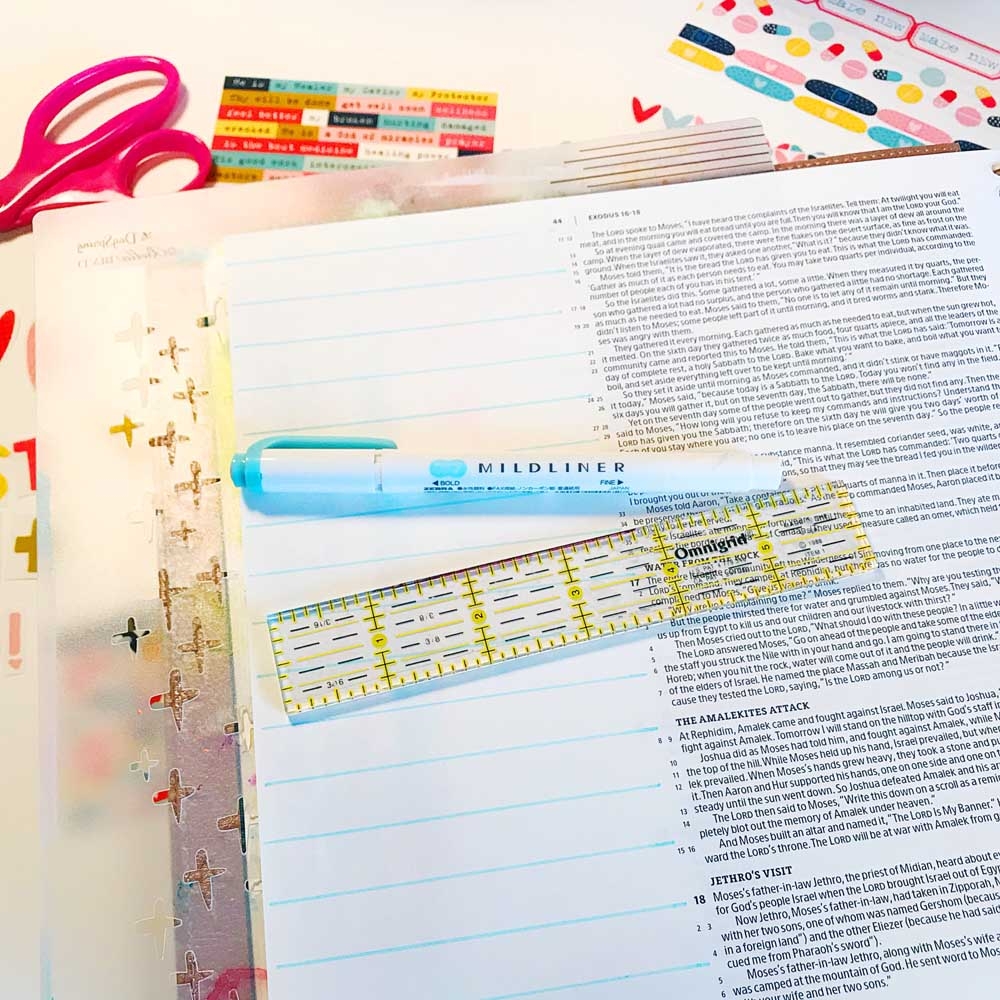 MADE NEW
MADE NEW
He is my Healer my Savior my Protector
Thy will be done get well soon
feel better my Human hurting damaged
He is a God of miracles
is the best medicine healing power
DaySpring
44 EXODUS 16-18
The LORD spoke to Moses, "I have heard the complaints of the Israelites. Tell them: At twilight you will eat
meat, and in the morning you will eat bread until you are full. Then you will know that I am the LORD your God."
So at evening quail came and covered the camp. In the morning there was a layer of dew all around the
camp. When the layer of dew evaporated, there were fine flakes on the desert surface, as fine as frost on the
ground. When the Israelites saw it, they asked one another, "What is it?" because they didn't know what it was.
Moses told them, "It is the bread the LORD has given you to eat. This is what the LORD has commanded:
'Gather as much of it as each person needs to eat. You may take two quarts per individual, according to the
number of people each of you has in his tent.'"
So the Israelites did this. Some gathered a lot, some a little. When they measured it by quarts, the per-
son who gathered a lot had no surplus, and the person who gathered a little had no shortage. Each gathered
as much as he needed to eat. Moses said to them, "No one is to let any of it remain until morning." But they
didn't listen to Moses; some people left part of it until morning, and it bred worms and stank. Therefore Mo-
ses was angry with them.
They gathered it every morning. Each gathered as much as he needed to eat, but when the sun grew hot,
it melted. On the sixth day they gathered twice as much food, four quarts apiece, and all the leaders of the
community came and reported this to Moses. He told them, "This is what the LORD has said: 'Tomorrow is a
day of complete rest, a holy Sabbath to the LORD. Bake what you want to bake, and boil what you want t
boil, and set aside everything left over to be kept until morning.'"
So they set it aside until morning as Moses commanded, and it didn't stink or have maggots in it. "
it today," Moses said, "because today is a Sabbath to the LORD. Today you won't find any in the field.
six days you will gather it, but on the seventh day, the Sabbath, there will be none."
Yet on the seventh day some of the people went out to gather, but they did not find any. Then the
said to Moses, "How long will you refuse to keep my commands and instructions? Understand tha
LORD has given you the Sabbath; therefore on the sixth day he will give you two days' worth of
Each of you stay where you are; no one is to leave his place on the seventh day." So the people re
MILDLINER
BOLD FINE
JAPAN
Omnigrid
1 2 3 4 5
WATER FROM THE ROCK
17 The entire Israelite community left the Wilderness of Sin moving from one place to the ne
complaining to me?" Moses replied to them. "Why are you testing th
But the people thirsted there for water and grumbled against Moses. They said, "W
us up from Egypt to kill us and our children and our livestock with thirst?"
Then Moses cried out to the LORD, "What should I do with these people? In a little
The LORD answered Moses, "Go on ahead of the people and take some of the elde
the staff you struck the Nile with in your hand and go. I am going to stand there in
Horeb; when you hit the rock, water will come out of it and the people will drink."
of the elders of Israel. He named the place Massah and Meribah because the Isr
cause they tested the LORD, saying, "Is the LORD among us or not?"
THE AMALEKITES ATTACK
At Rephidim, Amalek came and fought against Israel. Moses said to Joshua,
fight against Amalek. Tomorrow I will stand on the hilltop with God's staff i
Joshua did as Moses had told him, and fought against Amalek, while M
the top of the hill. While Moses held up his hand, Israel prevailed, but whe
lek prevailed. When Moses's hands grew heavy, they took a stone and p
it. Then Aaron and Hur supported his hands, one on one side and one on t
steady until the sun went down. So Joshua defeated Amalek and his ar
The LORD then said to Moses, "Write this down on a scroll as a remin
pletely blot out the memory of Amalek under heaven."
And Moses built an altar and named it, "The LORD Is My Banner."
ward the LORD's throne. The LORD will be at war with Amalek from g
JETHRO'S VISIT
18 Moses's father-in-law Jethro, the priest of Midian, heard about ev
for God's people Israel when the LORD brought Israel out of Egyp
Now Jethro, Moses's father-in-law, had taken in Zipporah, M
with her two sons, one of whom was named Gershom (because
in a foreign land") and the other Eliezer (because he had said
cued me from Pharaoh's sword").
Moses's father-in-law Jethro, along with Moses's wife a
was camped at the mountain of God. He sent word to Mos
with your wife and her two sons."